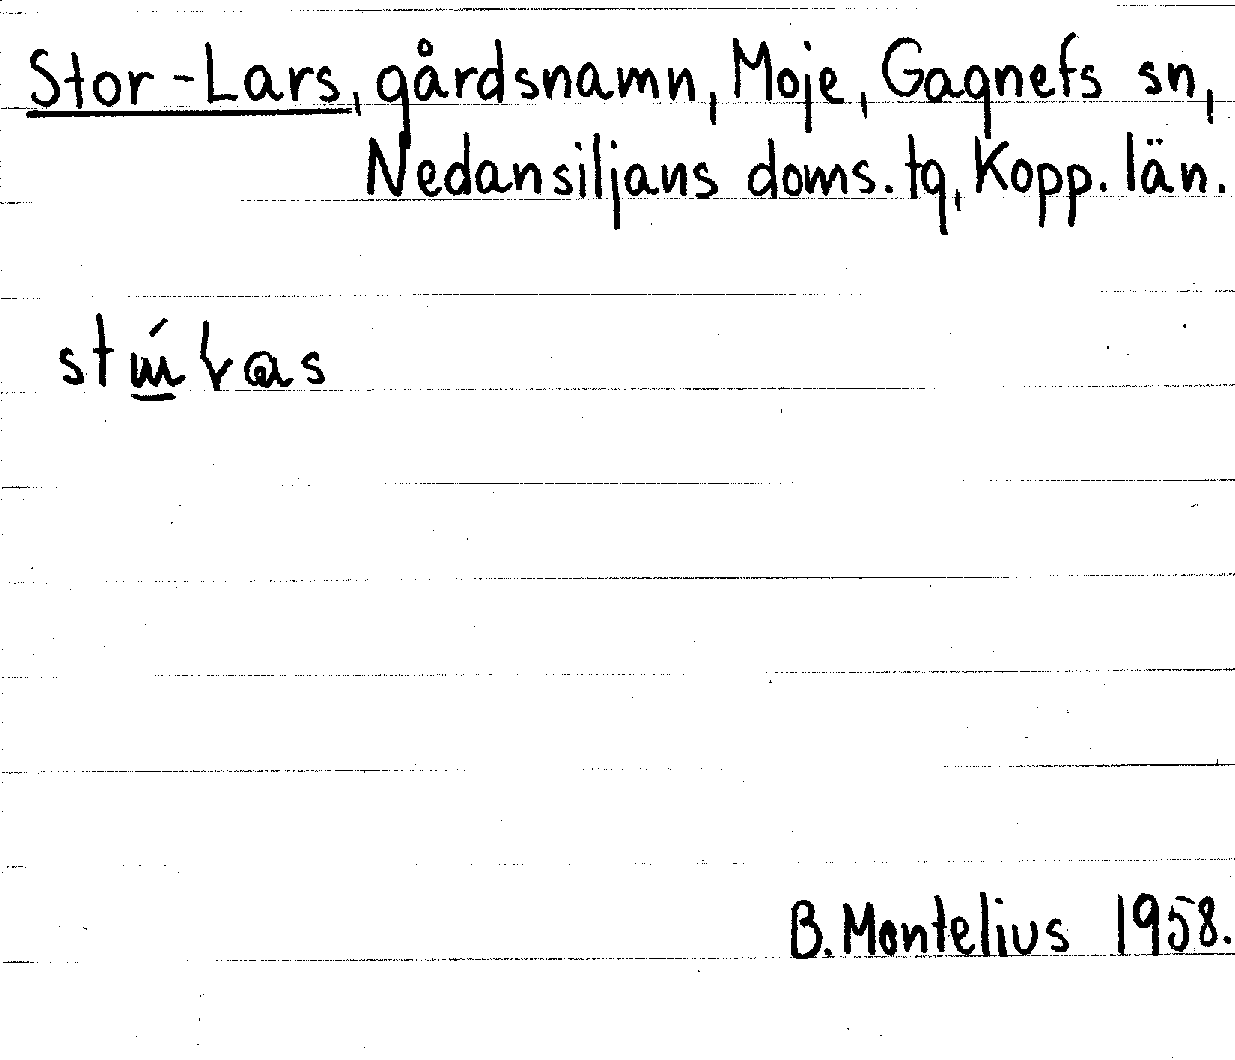 Stor-Lars, gårdsnamn, Moje, Gagnefs sn,
Nedansiljans doms. tg, Kopp. län.
B. Montelius 1958.